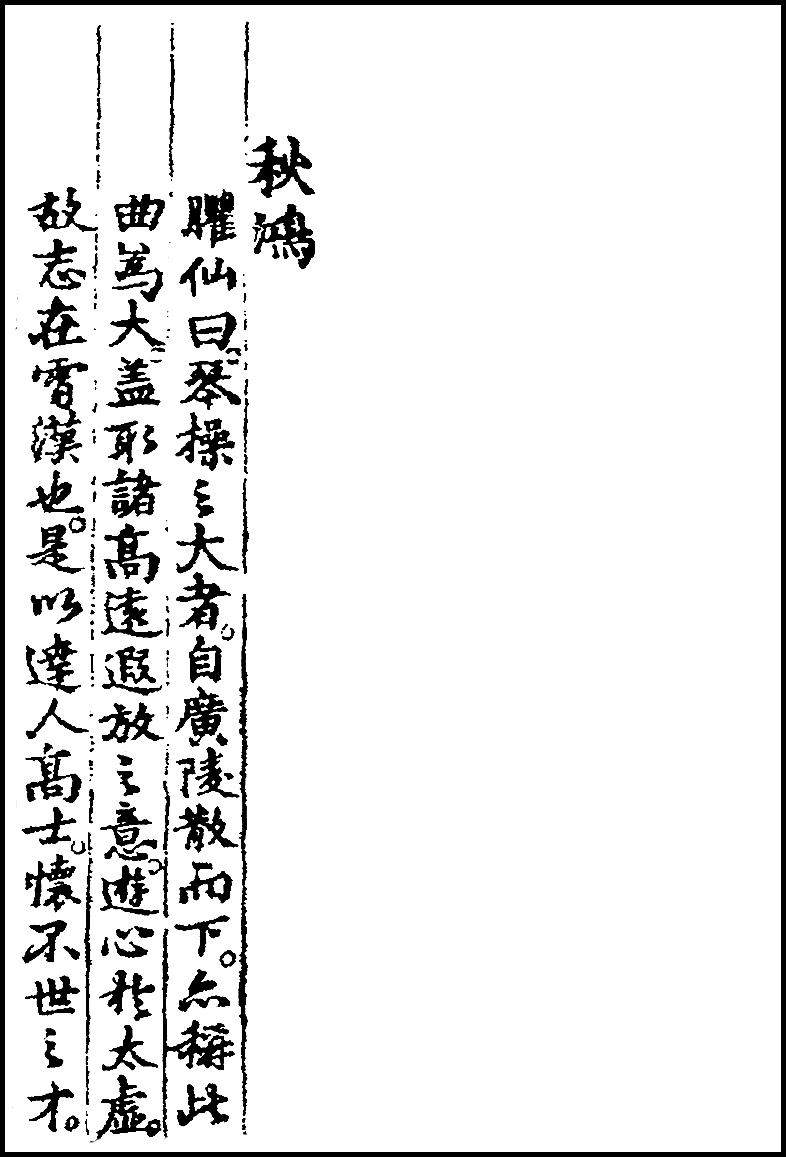 秋鴻
臞仙曰琴操之大者。自廣陵散而下。亦稱此
曲為大。蓋取諸高遠遐放之意。遊心於太虛。
故志在霄漢也。是以達人高士。懷不世之才。